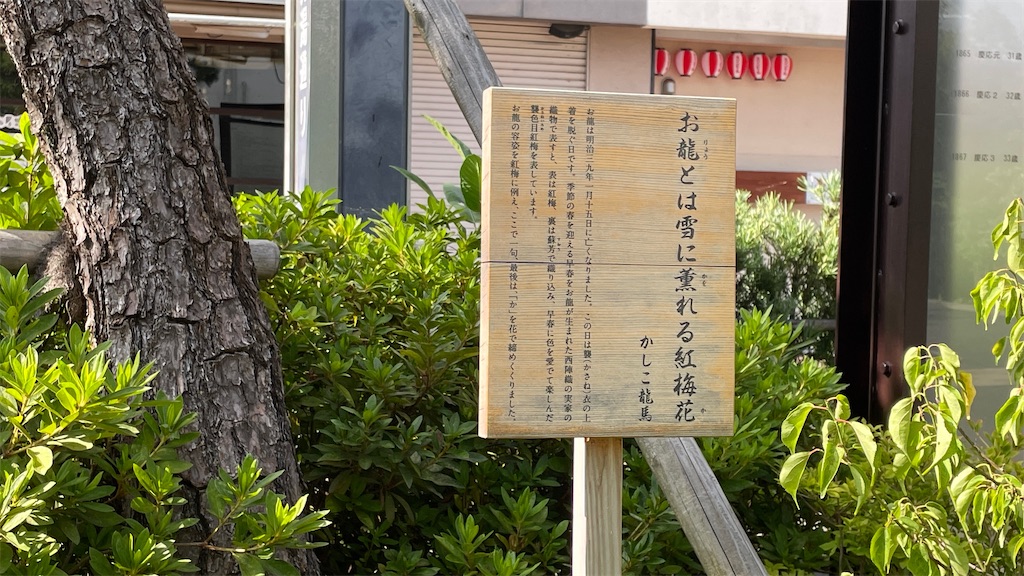 お龍とは雪に薫れる紅梅花
りょう
かを
か
かしこ龍馬
お龍は明治三九年一月十五日に亡くなりました。この日は襲(かさね)衣の上
着を脱ぐ日です。季節の春を迎える早春をお龍が生まれた西陣織の実家の
織物で表すと、表は紅梅、裏は蘇芳で織り込み、早春に色を愛でて楽しんだ
襲色目紅梅を表しています。
お龍の容姿を紅梅に例え、ここで一句。最後は、「か」を花で締めくくりました。
1865 慶応元 31歳
1866 慶応2 32歳
1867 慶応3 33歳